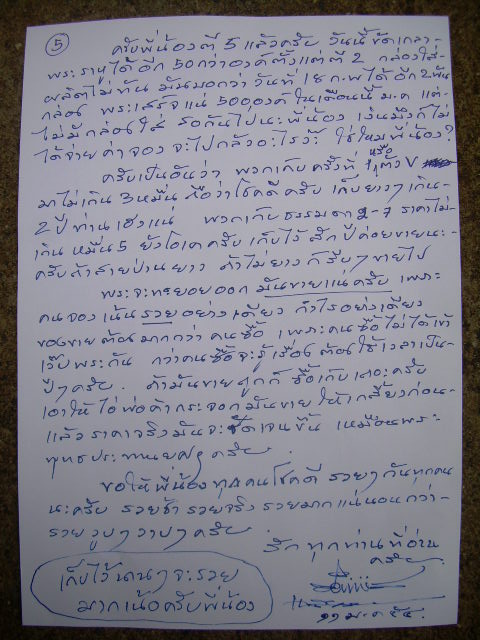 5
ครับพี่น้องตี 5 แล้วครับ วันนี้ขัดเกลา-
พระราหูได้อีก 50 กว่าองค์ตั้งแต่ตี 2 กล่องใส่-
ผลิตไม่ทัน มันบอกว่า วันที่ 18 ก.พ ได้อีก 2 พัน
กล่อง พระเสร็จแน่ 5000 องค์ ในเดือนนี้ ม.ค แต่-
ไม่มีกล่องใส่ รอกันไปนะพี่น้อง เงินมึงก็ไม่
ได้จ่ายค่าจอง จะไปกลัวอะไรวะ ใช่ไหมพี่น้อง?
ครับเป็นอันว่า พวกเก็บครั้งที่ 1 หรือ ตัว V
มาไม่เกิน 3 หมื่น ถือว่าโชคดีครับ เก็บยาวๆ เกิน-
2 ปี ท่านเฮงแน่ พวกเก็บธรรมดา 2-7 ราคาไม่-
เกินหมื่น 5 ยังโอเคครับ เก็บไว้สักปีค่อยขายนะ-
ครับถ้าสายป่านยาว ถ้าไม่ยาวก็รีบๆ ขายไป
พระจะทยอยออก มันขายแน่ครับ เพราะ
คนจองเน้นรวยอย่างเดียว กำไรอย่างเดียว
ของขายต้องมากกว่าคนซื้อ เพราะคนซื้อไม่ได้เข้า
เว็บพระกัน กว่าคนซื้อจะรู้เรื่องต้องใช้เวลาเป็น-
ปีๆ ครับ. ถ้ามันขายถูกก็ซื้อเก็บเถอะครับ
เอาให้ไอ้พ่อค้ากระจอกมันขายให้เกลี้ยงก่อน-
แล้วราคาจริงมันจะชัดเจนขึ้น เหมือนพระ
พุทธประทานยศฯ ครับ.
ขอให้พี่น้องทุกคนโชคดี รวยๆ กันทุกคน
นะครับ รวยช้า รวยจริง รวยมากแน่นอนกว่า-
รวยวูบๆ วาบๆ ครับ.
รักทุกท่านที่อ่าน
ครับ.
เก็บไว้นานๆ จะรวย
มากเน้อครับพี่น้อง
๑๑ ม.ค ๕๕.